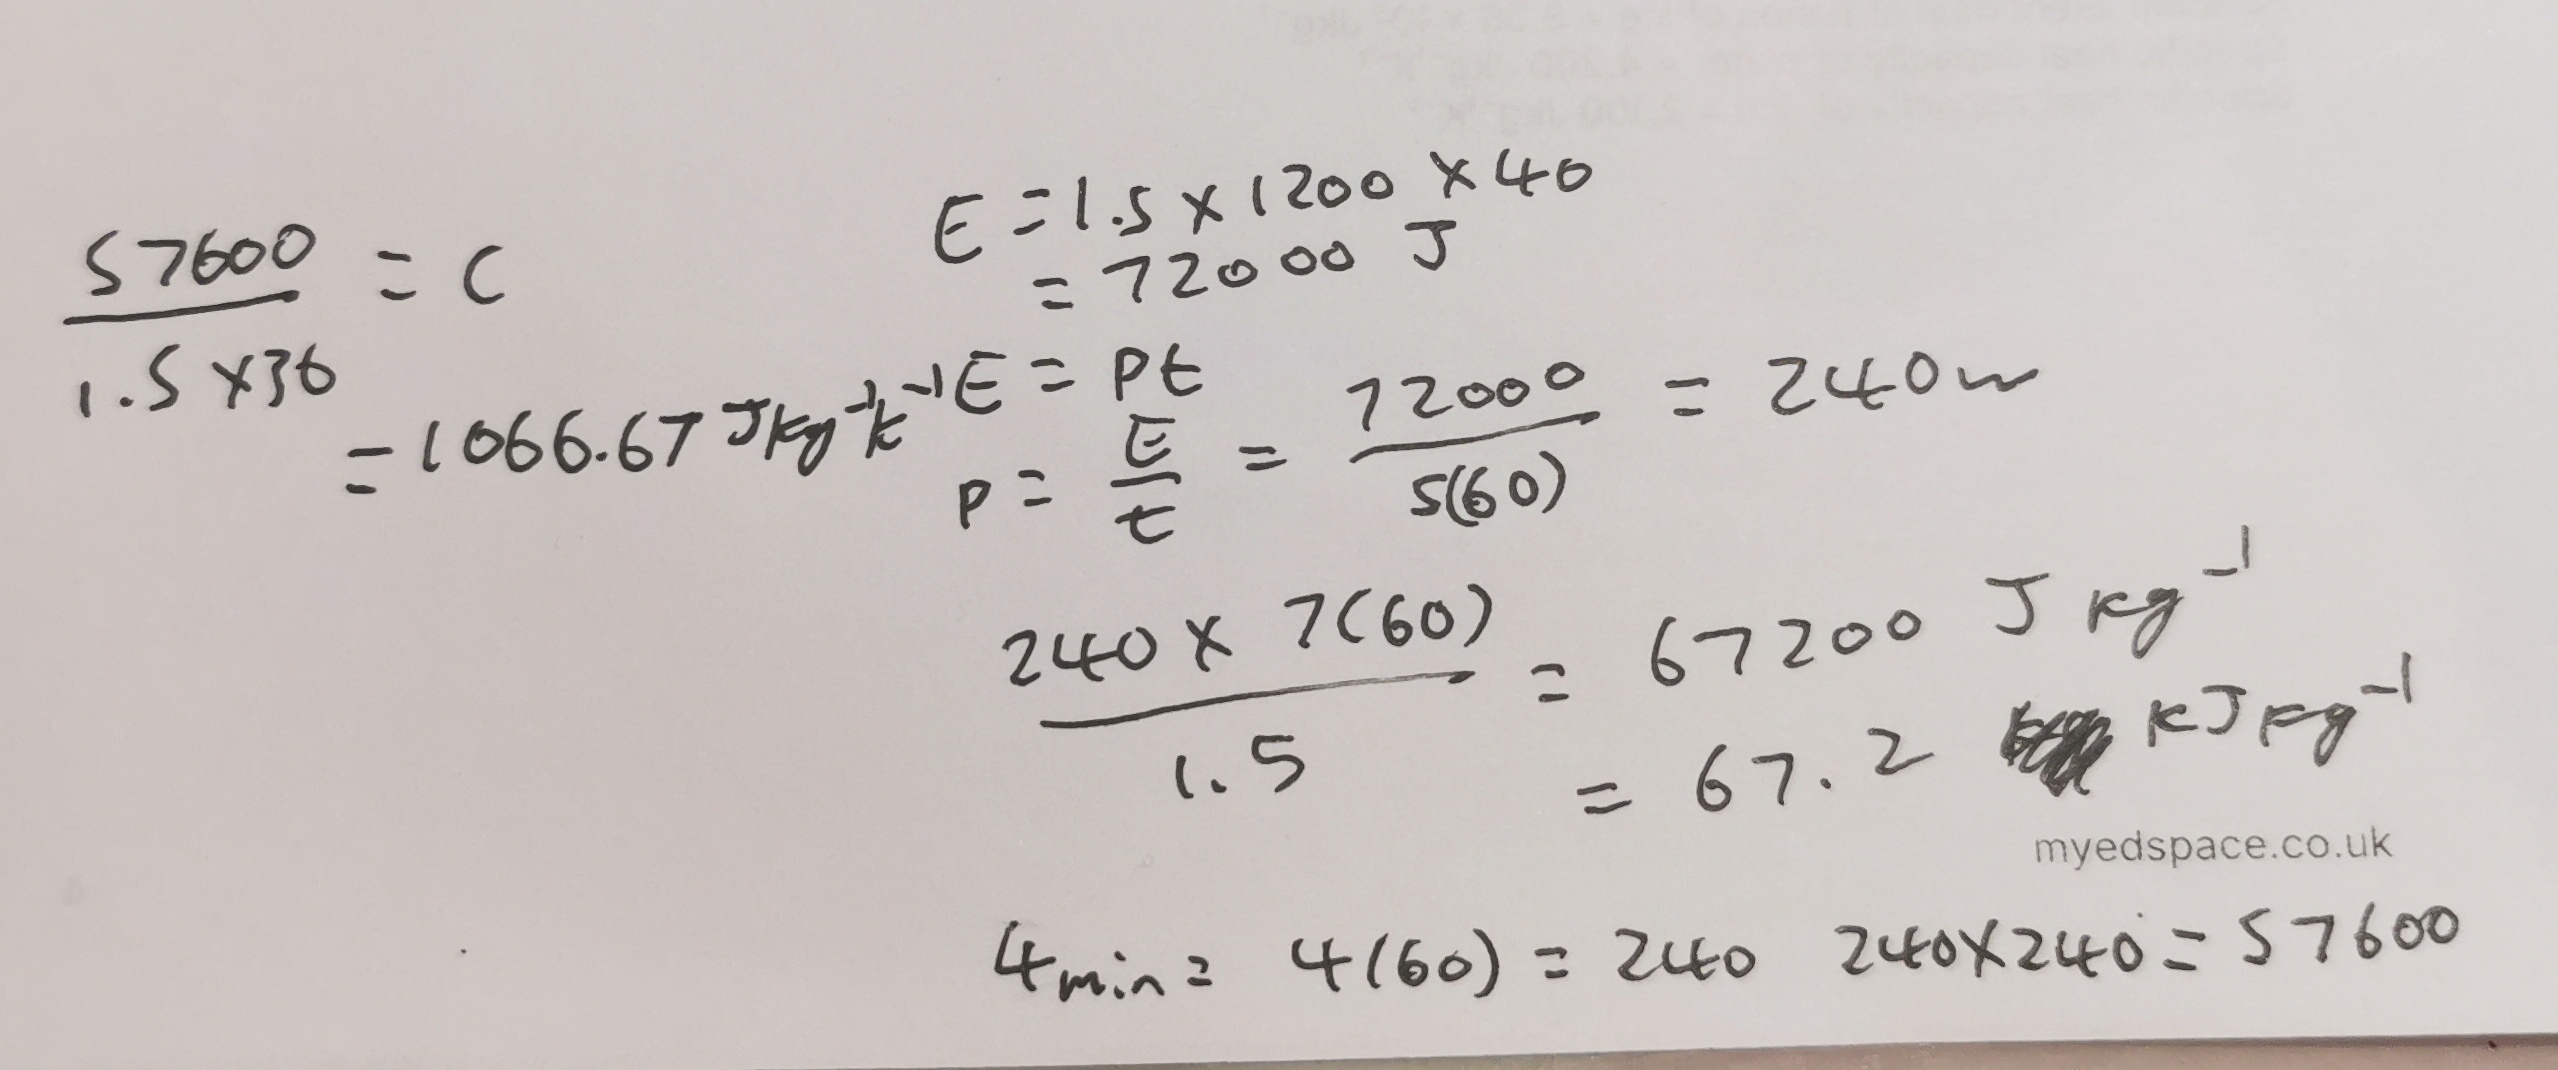 E = 1.5 × 1200 × 40
= 72000 J
57600 / 1.5 × 36 = C
= 1066.67 Jkg⁻¹k⁻¹
E = Pt
P = E/t = 72000 / 5(60) = 240w
240 × 7(60) / 1.5 = 67200 J kg⁻¹
= 67.2 kJ kg⁻¹
myedspace.co.uk
4min = 4(60) = 240 240×240 = 57600